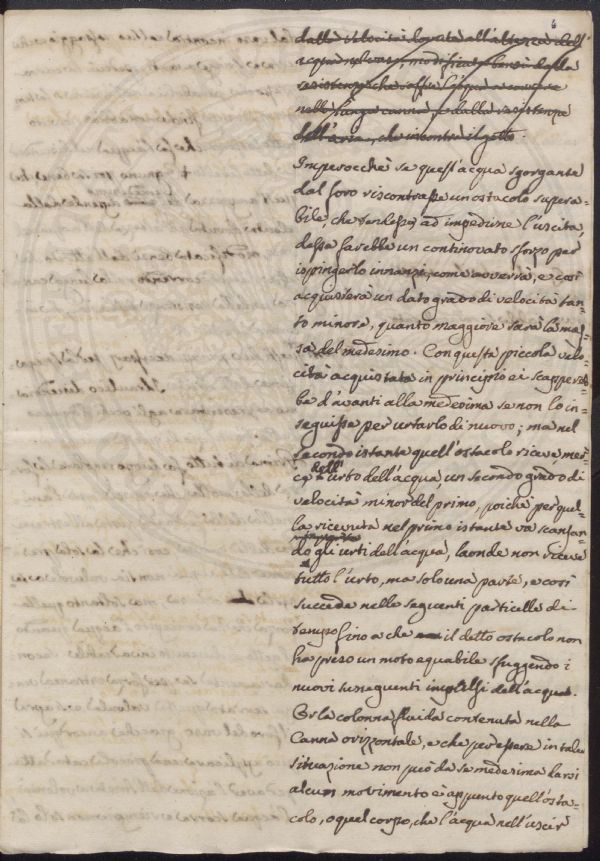 6
dalla velocità dovuta all'altezza dell'
acqua nel vaso, modificata bensì dalla
resistenza che soffre l'acqua a correre
nella lunga canna, e dalla resistenza
dell'aria, che incontra il getto.
Imperocchè se quest'acqua sgorgante
dal foro riscontrasse un ostacolo supera=
bile, che tendesse ad impedirne l'uscita,
dessa farebbe un continovato sforzo per
ispingerlo innanzi, come avverrà, e così
acquisterà un dato grado di velocità tan=
to minore, quanto maggiore sarà la mas=
sa del medesimo. Con questa piccola velo=
cità acquistata in principio ei scappereb=
be d'avanti alla medesima se non lo in=
seguisse per urtarlo di nuovo; ma nel
secondo istante quell'ostacolo riceve, mer=
cè l'urto dell'acqua, un secondo grado di
velocità minor del primo, poichè per quel=
la ricevuta nel primo istante va scansan=
do gli urti dell'acqua, laonde non riceve
tutto l'urto, ma solo una parte, e così
succede nelle seguenti particelle di
tempo fino a che il detto ostacolo non
ha preso un moto equabile sfuggendo i
nuovi susseguenti impulsi dell'acqua.
Or la colonna fluida contenuta nella
Canna orizzontale, e che per essere in tale
situazione non può da se medesima darsi
alcun movimento è appunto quell'osta=
colo, o quel corpo, che l'acqua nell'uscir